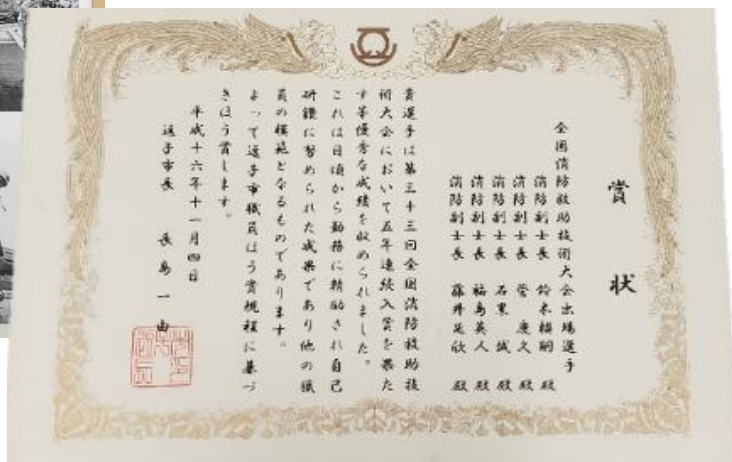 賞状
全国消防救助技術大会出場選手
消防副士長 鈴木 嗣 殿
消防副士長 菅 慶久 殿
消防副士長 石黒 誠 殿
消防副士長 福島英人 殿
消防副士長 藤井 欣 殿
貴選手は第三十三回全国消防救助技
術大会において五年連続入賞を果た
す等優秀な成績を収められました。
これは日頃から勤務に精励され自己
研鑽に努められた成果であり他の職
員の模範となるものであります。
よって逗子市職員ほう賞規程に基づ
きほう賞します。
平成十六年十一月四日
逗子市長 長島一由